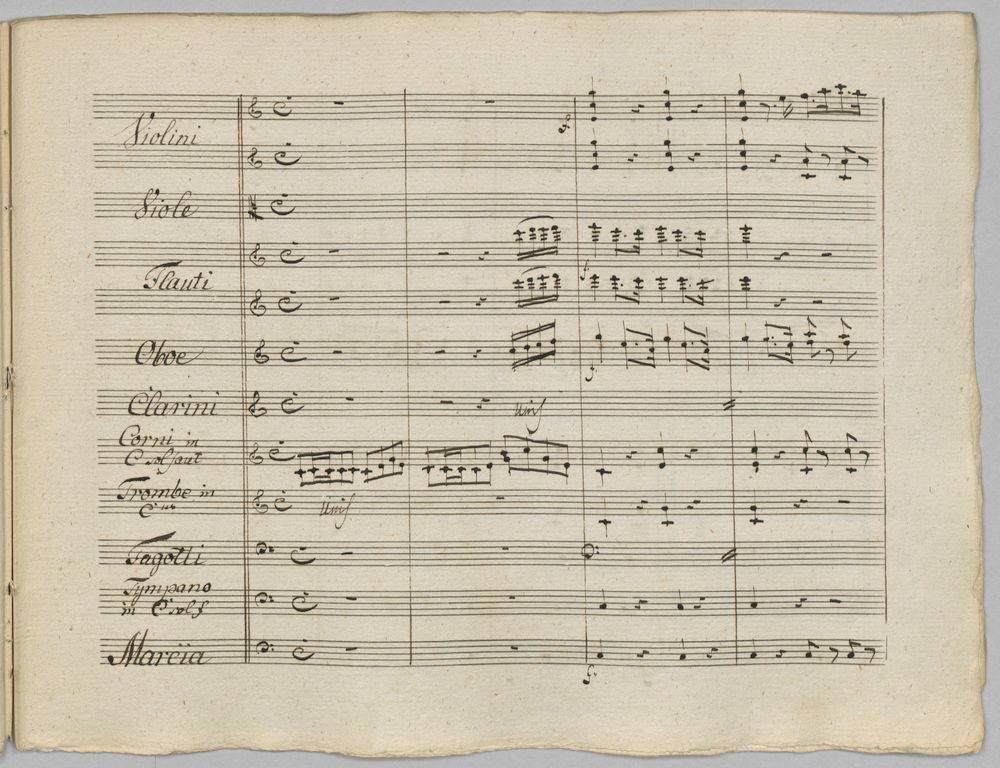 Violini
f.
Viole
Flauti
f.
Oboe
f.
Clarini
Unis
Corni in
C solfaut
Trombe in
Unis
Fagotti
Tympano
in C solf
Marcia
f.